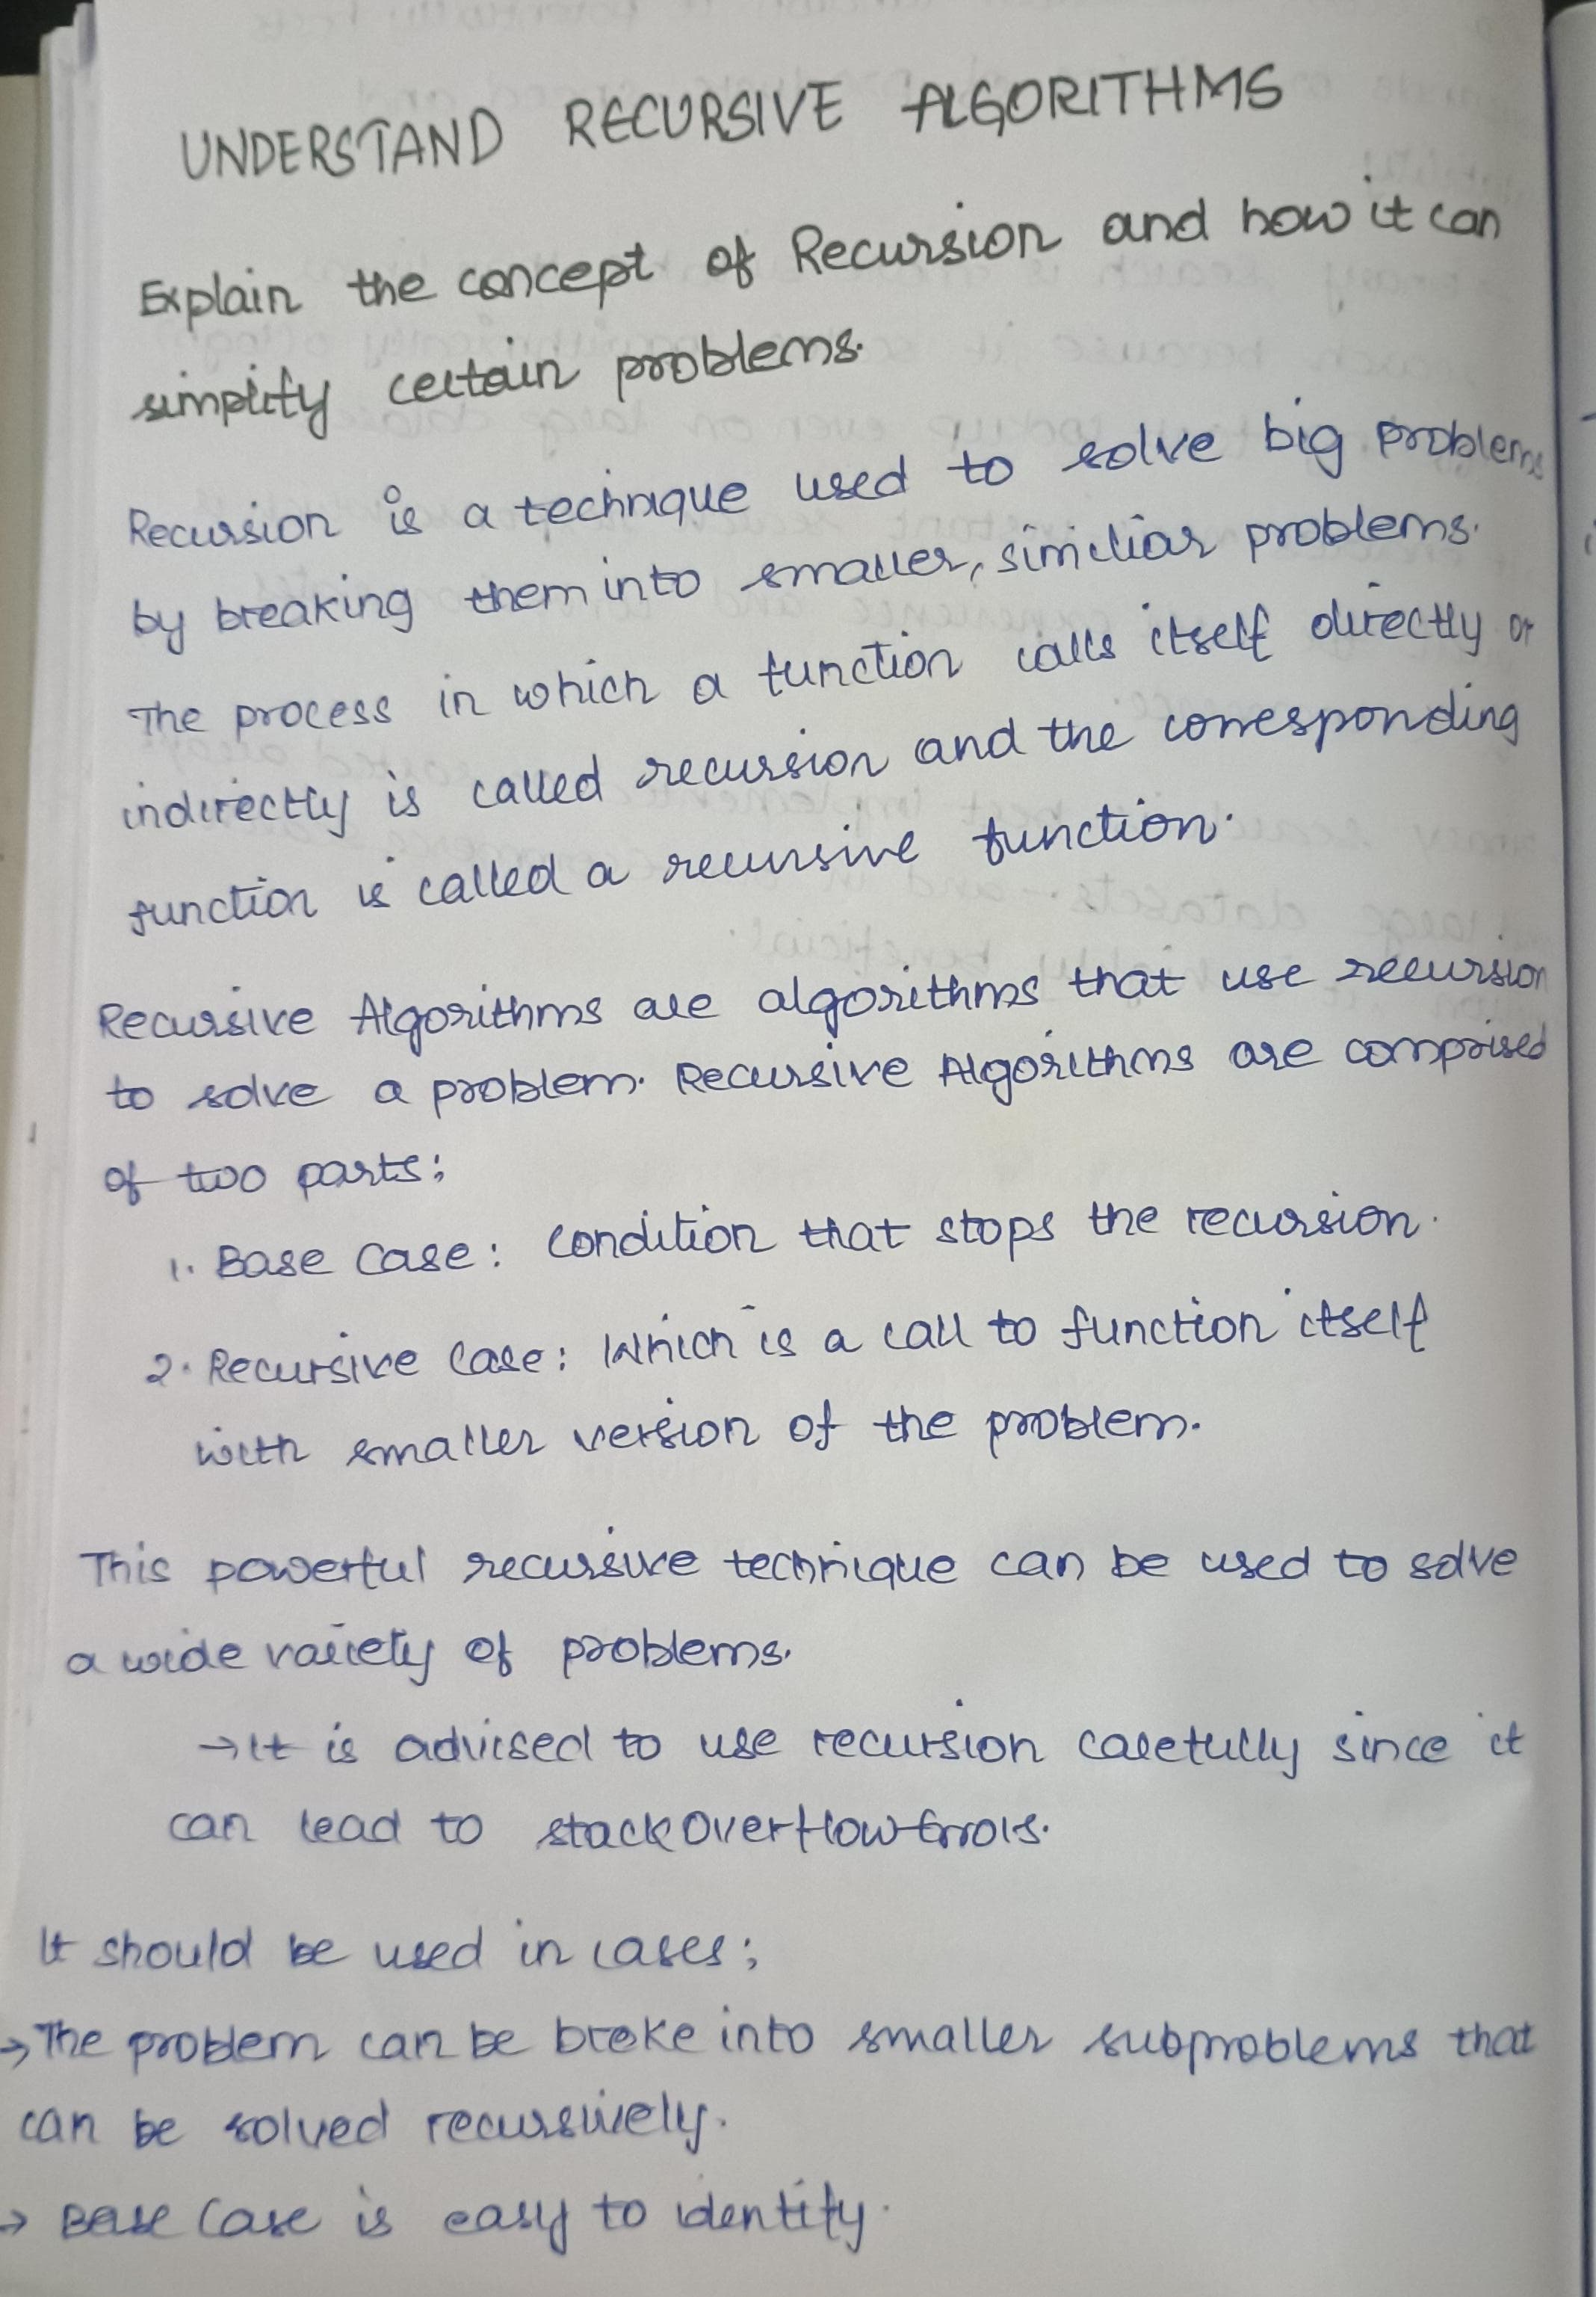 UNDERSTAND RECURSIVE ALGORITHMS
Explain the concept of Recursion and how it can
simplify certain problems.
Recursion is a technique used to solve big problems
by breaking them into smaller, similiar problems.
The process in which a function calls itself directly or
indirectly is called recursion and the corresponding
function is called a recursive function.
Recursive Algorithms are algorithms that use recursion
to solve a problem. Recursive Algorithms are comprised
of two parts:
1. Base Case: Condition that stops the recursion.
2. Recursive Case: Which is a call to function itself
with smaller version of the problem.
This powerful recursive technique can be used to solve
a wide variety of problems.
→It is advised to use recursion carefully since it
can lead to stackOverflowErrors.
It should be used in cases;
→The problem can be broke into smaller subproblems that
can be solved recursively.
→ Base Case is easy to identify.